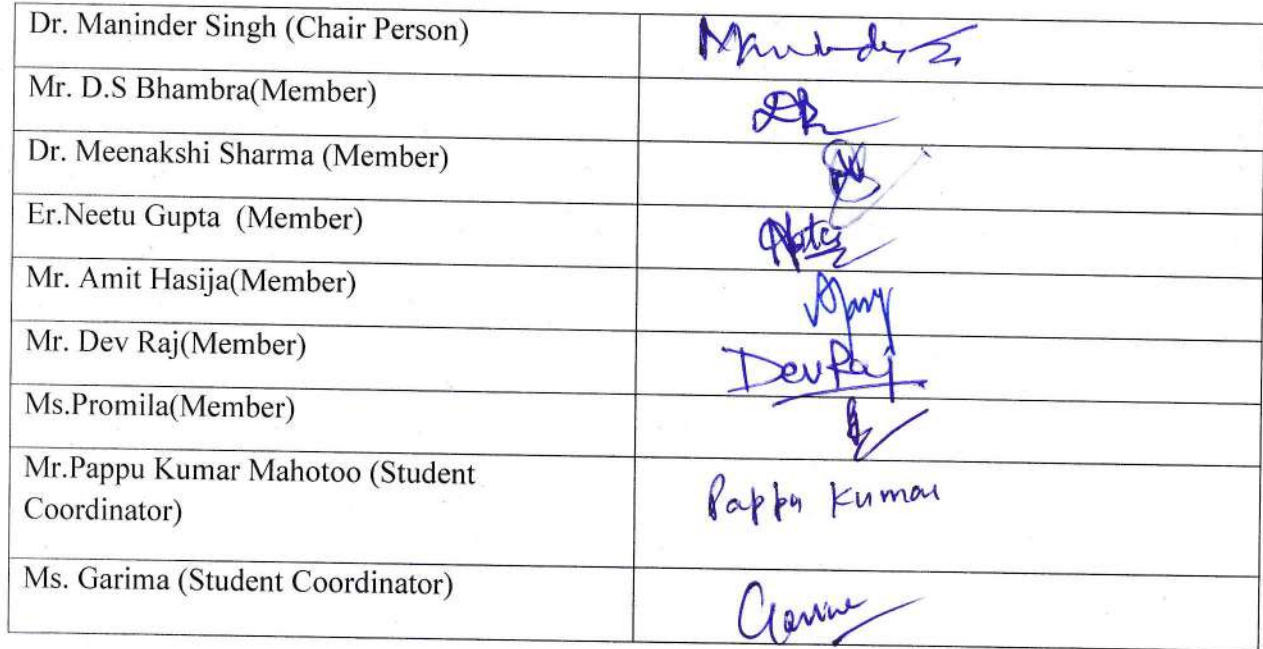 Dr. Maninder Singh (Chair Person)
Mr. D.S Bhambra(Member)
Dr. Meenakshi Sharma (Member)
Er.Neetu Gupta (Member)
Mr. Amit Hasija(Member)
Mr. Dev Raj(Member)
DevRaj
Ms.Promila(Member)
Mr.Pappu Kumar Mahotoo (Student
Coordinator)
Pappu Kumar
Ms. Garima (Student Coordinator)